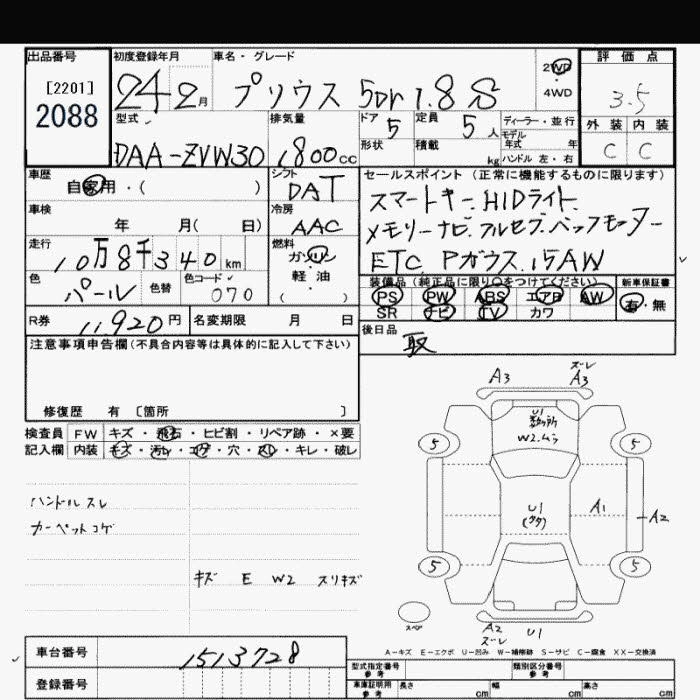 出品番号 初度登録年月 車名・グレード 評価点
[2201]
2088
24 2月 プリウス 5Dr 1.8 S 2WD
4WD
3.5
型式 排気量 ドア 5 定員 5人 ディーラー・並行
モデル年式 年
外装 内装
DAA-ZVW30 1800cc 形状 積載 kg ハンドル 左・右
C C
車歴 シフト セールスポイント (正常に機能するものに限ります)
自家用・( ) DAT スマートキー.HIDライト.
車検 冷房
年 月( 日) AAC メモリーナビ.フルセグ.バックモニター
走行 燃料
10万8千340km ガソリン ETC Pガラス.15AW
色 色替 色コード 軽油
パール 070 ( )
装備品 (純正品に限り○をつけてください) 新車保証書
PS PW ABS エアB AW 有・無
SR ナビ TV カワ
R券 11,920円 名変期限 月 日 後日品
取
注意事項申告欄(不具合内容等は具体的に記入して下さい)
修復歴 有 〔箇所 〕
検査員 FW キズ・飛石・ヒビ割・リペア跡・×要
記入欄 内装 キズ・汚レ・コゲ・穴・スレ・キレ・破レ
ハンドルスレ
カーペットコゲ
キズ E W2 スリキズ
A3 ズレ
A3
U1
W2.ムラ
5 5
U1 A1 A2
5 5
スペア
A2 U1
ズレ
A-キズ E-エクボ U-凹み W-補修跡 S-サビ C-腐食 XX-交換済
車台番号 1513728
登録番号
型式指定番号 参考 類別区分番号 参考
車庫証明用 参考 長さ cm 幅 cm 高さ cm